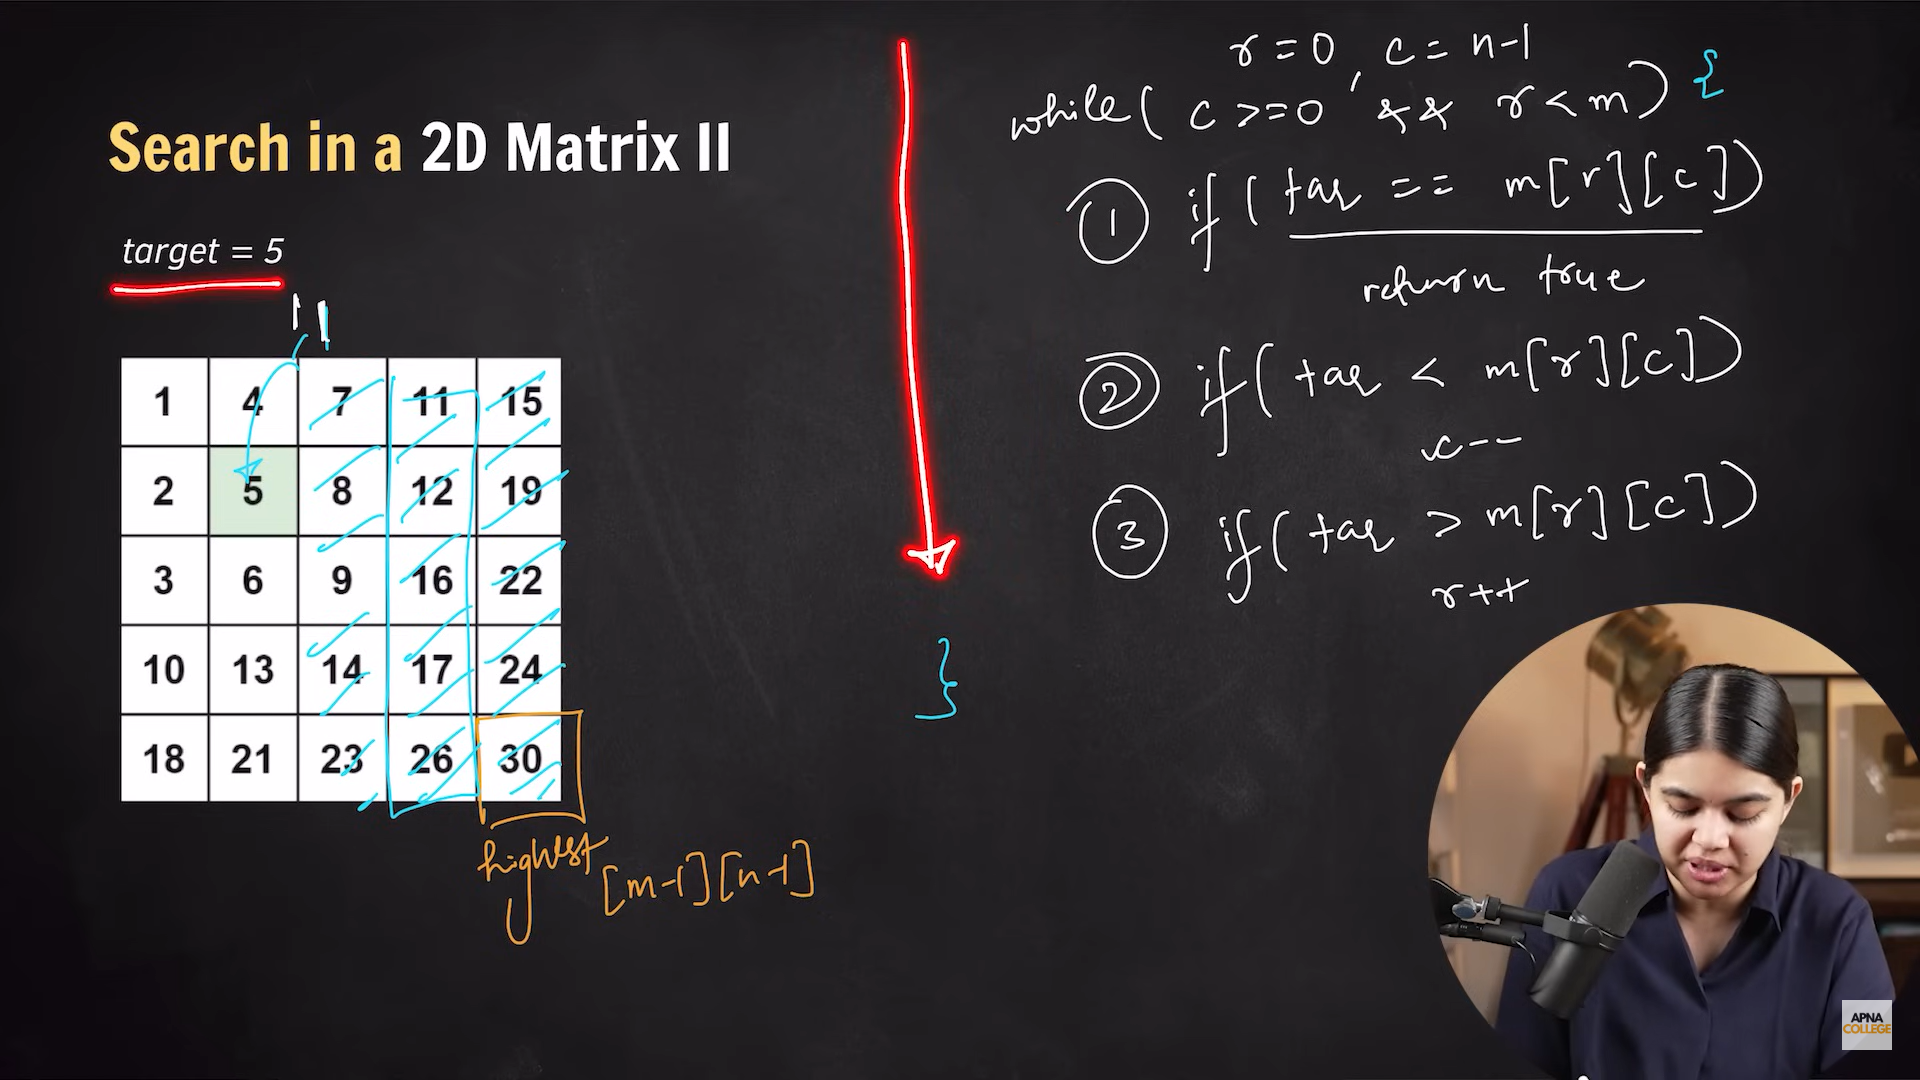 Search in a 2D Matrix II
target = 5
1 4 7 11 15
2 5 8 12 19
3 6 9 16 22
10 13 14 17 24
18 21 23 26 30
highest
[m-1][n-1]
r = 0, c = n-1
while( c >= 0 && r < m) {
1 if ( tar == m[r][c])
return true
2 if( tar < m[r][c])
c--
3 if( tar > m[r][c])
r++
}
APNA
COLLEGE